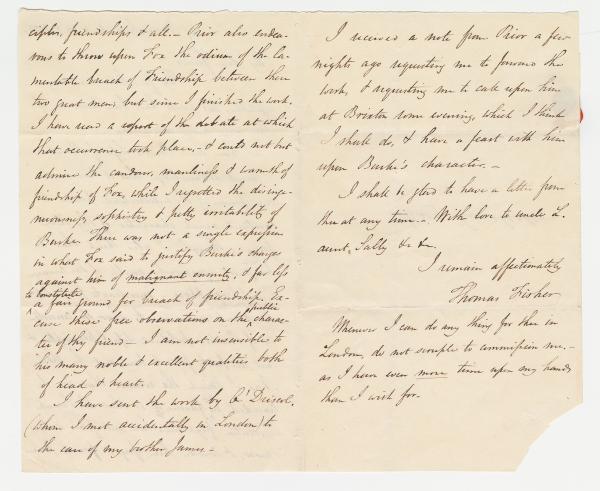 ciples, friendships & all. – Prior also endea-
vors to throw upon Fox the odium of the la-
mentable breach of Friendship between these
two great men, but since I finished the work,
I have read a report of the debate at which
that occurrence took place, – & could not but
admire the candour, manliness & warmth of
friendship of Fox, while I regretted the disinge-
nuousness, sophistry & petty irritability of
Burke. There was not a single expression
in what Fox said to justify Burke's charges
against him of malignant enmity, & far less
to constitute
a fair ground for breach of friendship. Ex-
public
cuse these free observations on the charac-
ter of thy friend – I am not insensible to
his many noble & excellent qualities both
of head & heart.
I have sent the work by Ct Driscol,
(whom I met accidentally in London) to
the care of my brother James –
I received a note from Prior a few
nights ago requesting me to forward the
work, & requesting me to call upon him
at Brixton some evening, which I think
I shall do, & have a feast with him
upon Burke's character. –
I shall be glad to have a letter from
thee at any time – With love to uncle &
aunt, Sally &c &c
I remain affectionately
Thomas Fisher
Whenever I can do any thing for thee in
London, do not scruple to commission me, –
as I have even more time upon my hands
than I wish for.